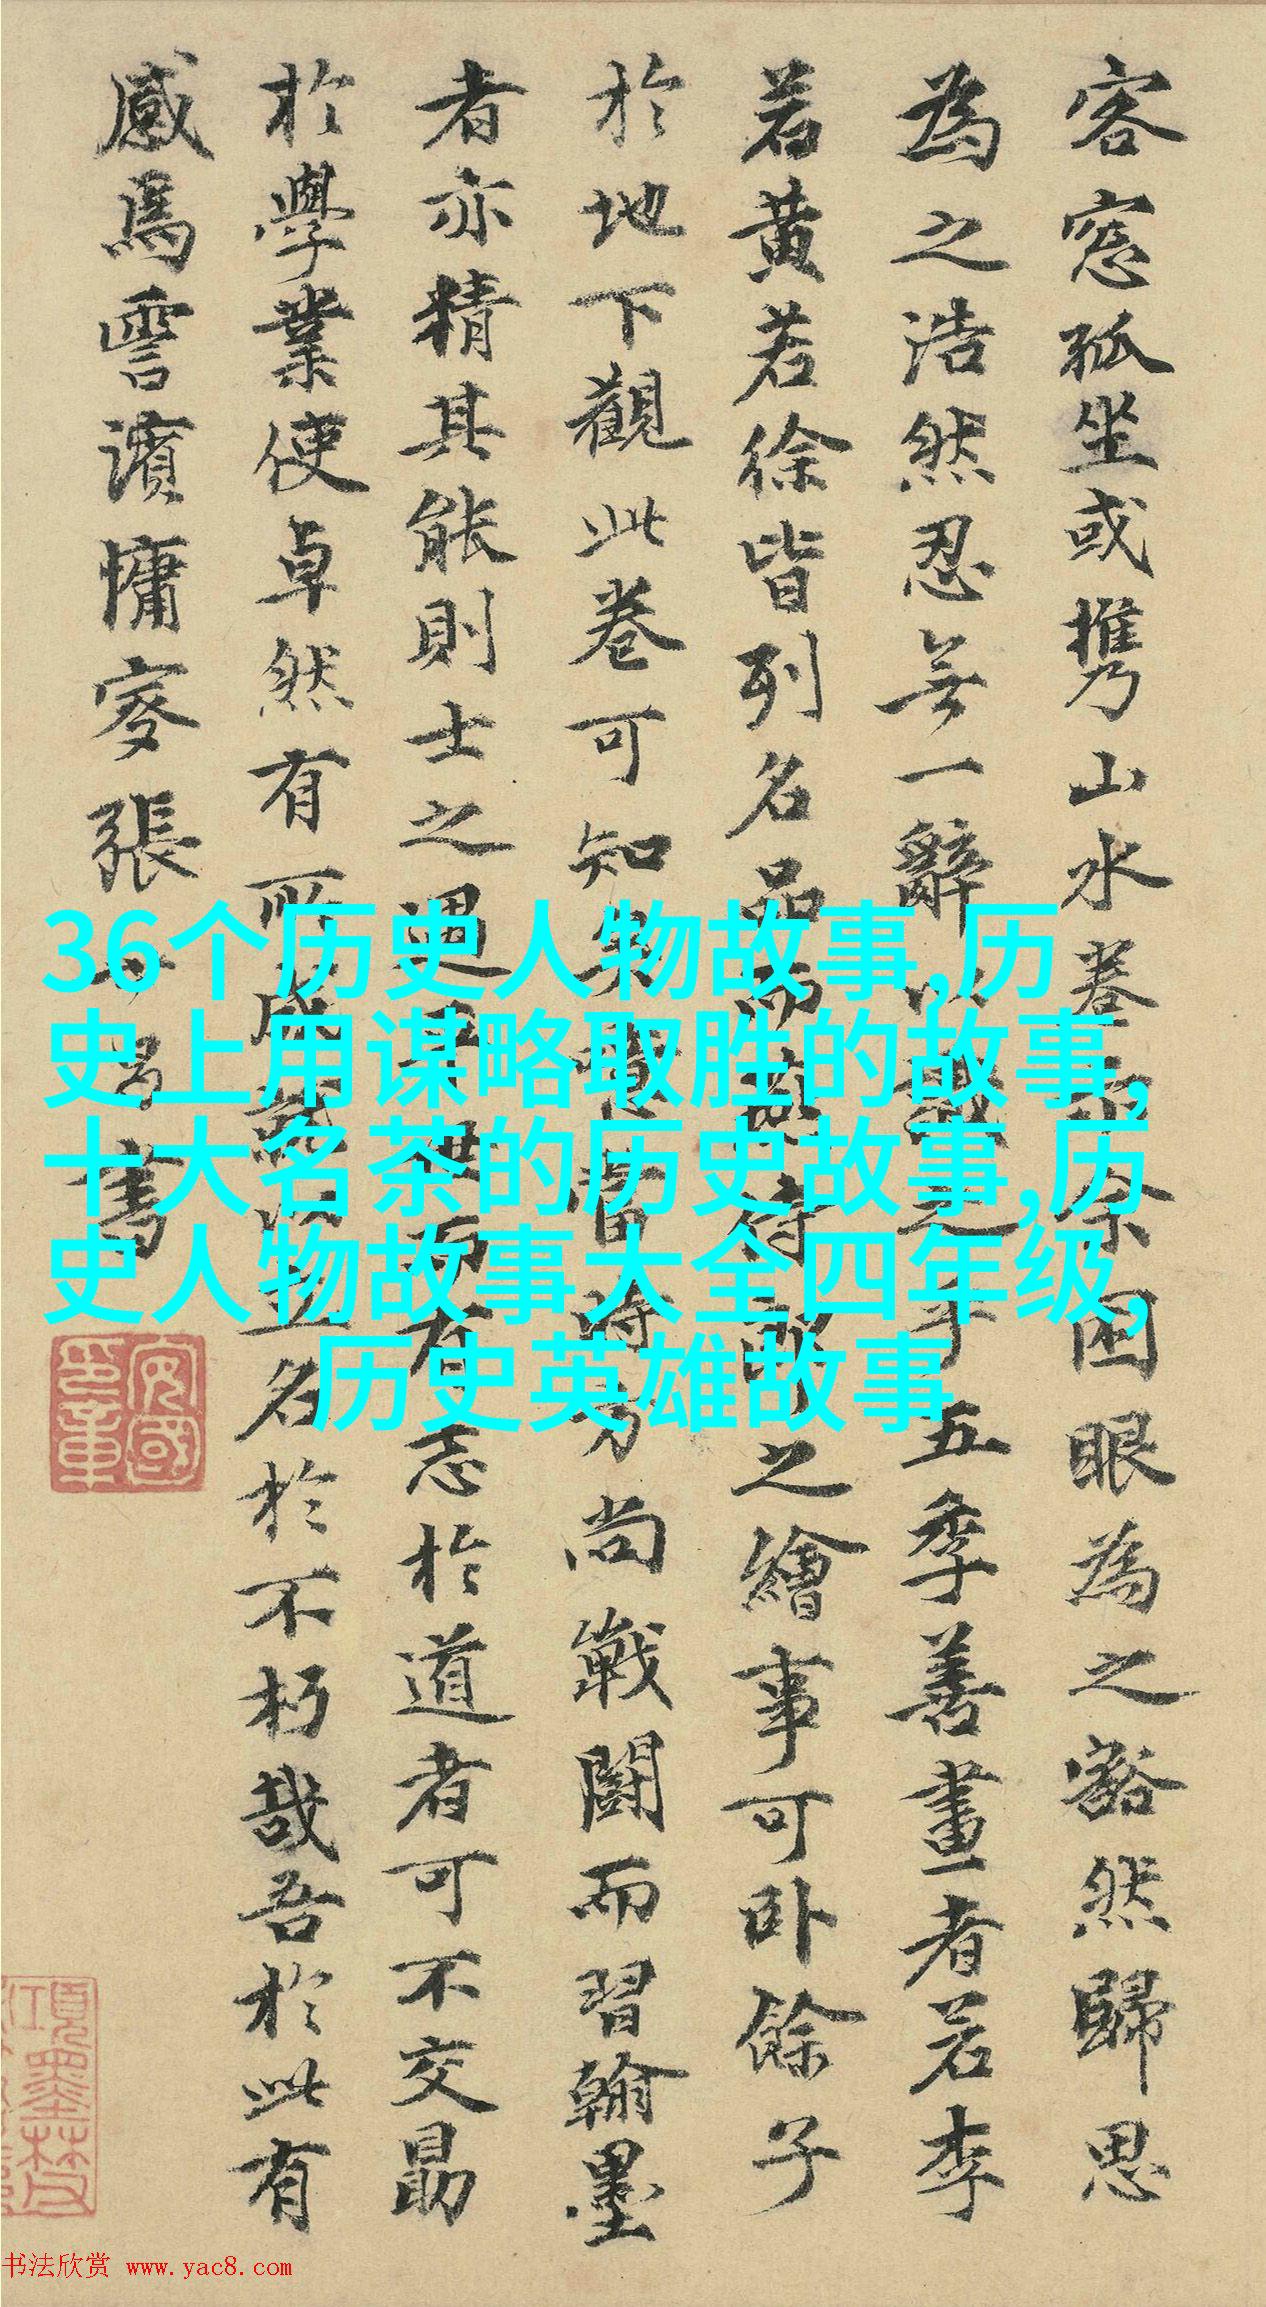 客窓孤坐或携山水卷余困眼為之豁然歸思
為之浩然忍無一辭以識之乎五季善畫者若李
若黄若徐皆列名品而待詔之繪事可卧餘子
於地下觀此卷可知矣噫當時方尚戰鬭而習翰墨
者亦精其能則士之遇平世而有志於道者可不交勗
於學業使卓然有所成就以立名於不朽哉吾於此有
感焉霅濱慵叟張書
36个历史人物故事,历
史上用谋略取胜的故事,
十大名茶的历史故事,历
史人物故事大全四年级,
历史英雄故事
书法欣赏 www.yac8.com